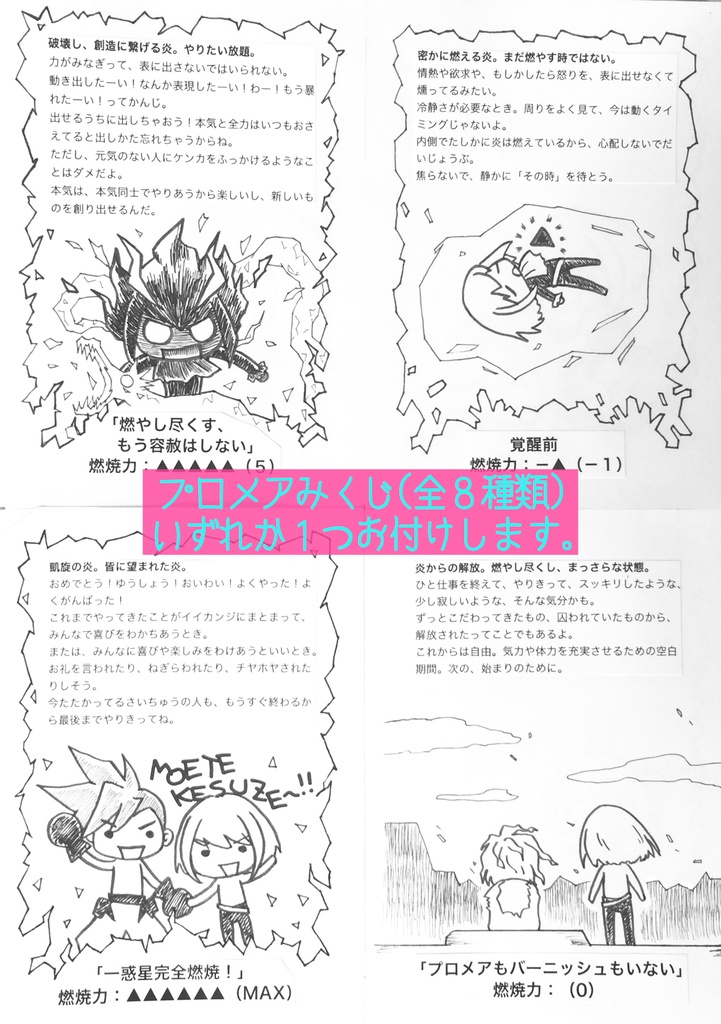 破壊し、創造に繋げる炎。やりたい放題。
力がみなぎって、表に出さないではいられない。
動き出したーい！なんか表現したーい！わー！もう暴
れたーい！ってかんじ。
出せるうちに出しちゃおう！本気と全力はいつもおさ
えてると出しかた忘れちゃうからね。
ただし、元気のない人にケンカをふっかけるようなこ
とはダメだよ。
本気は、本気同士でやりあうから楽しいし、新しいも
のを創り出せるんだ。
「燃やし尽くす、
もう容赦はしない」
燃焼力：▲▲▲▲▲（5）
密かに燃える炎。まだ燃やす時ではない。
情熱や欲求や、もしかしたら怒りを、表に出せなくて
燻ってるみたい。
冷静さが必要なとき。周りをよく見て、今は動くタイ
ミングじゃないよ。
内側でたしかに炎は燃えているから、心配しないでだ
いじょうぶ。
焦らないで、静かに「その時」を待とう。
覚醒前
燃焼力：－▲（－1）
プロメアみくじ(全８種類)
いずれか１つお付けします。
凱旋の炎。皆に望まれた炎。
おめでとう！ゆうしょう！おいわい！よくやった！よ
くがんばった！
これまでやってきたことがイイカンジにまとまって、
みんなで喜びをわかちあうとき。
または、みんなに喜びや楽しみをわけあうといいとき。
お礼を言われたり、ねぎらわれたり、チヤホヤされた
りしそう。
今たたかってるさいちゅうの人も、もうすぐ終わるか
ら最後までやりきってね。
MOETE
KESUZE〜!!
「一惑星完全燃焼！」
燃焼力：▲▲▲▲▲▲（MAX）
炎からの解放。燃やし尽くし、まっさらな状態。
ひと仕事を終えて、やりきって、スッキリしたような、
少し寂しいような、そんな気分かも。
ずっとこだわってきたもの、囚われていたものから、
解放されたってことでもあるよ。
これからは自由。気力や体力を充実させるための空白
期間。次の、始まりのために。
「プロメアもバーニッシュもいない」
燃焼力：（0）